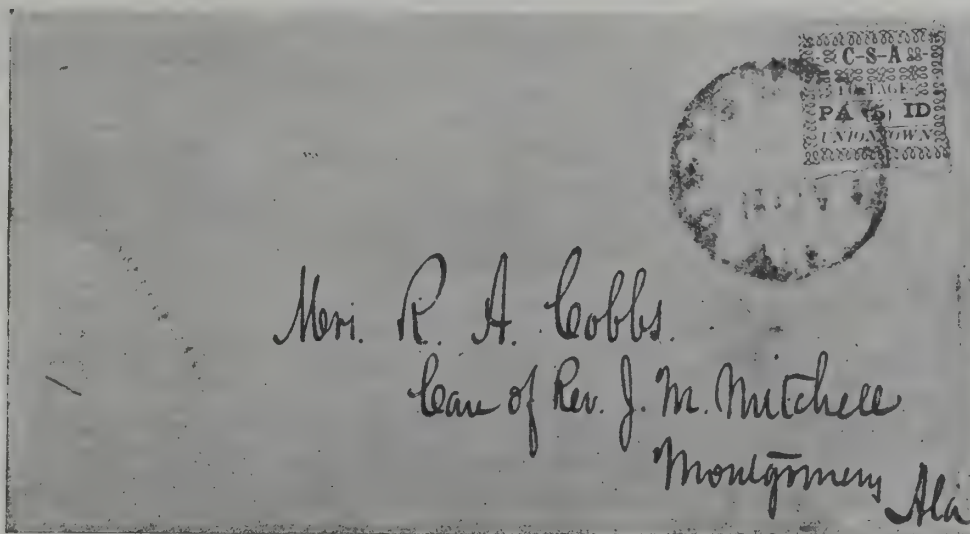 C-S-A
POSTAGE
PA (5) ID
UNIONTOWN
Mrs. R. A. Cobbs.
Care of Rev. J. M. Mitchell
Montgomery Ala